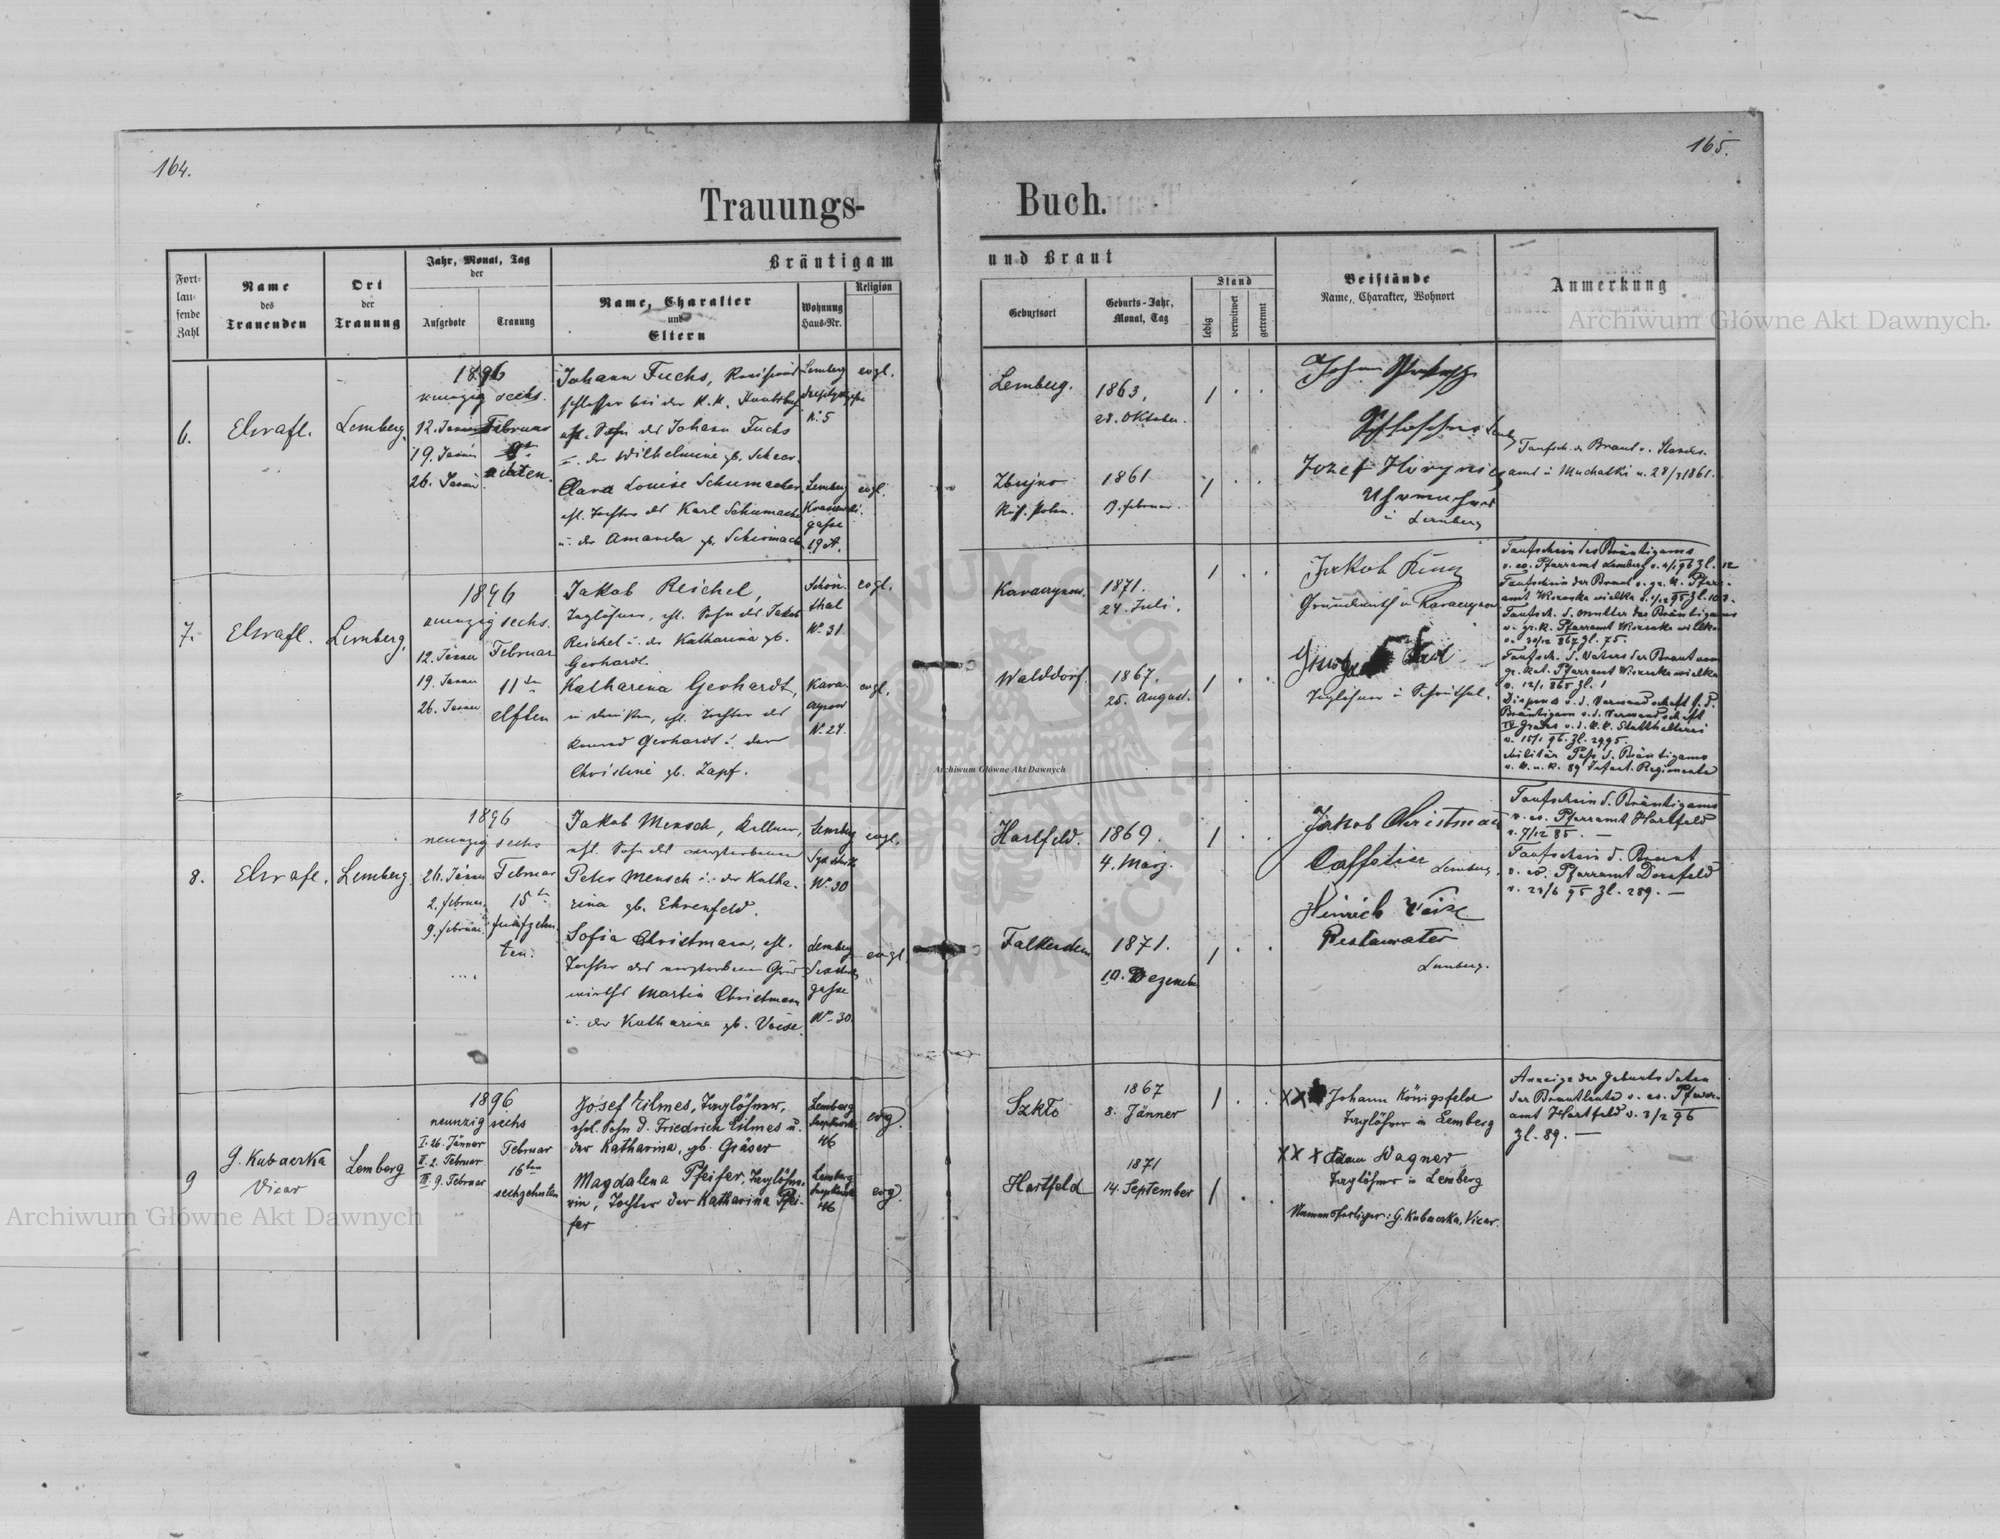 164.
165.
Trauungs-
Buch.
Fort-
lau-
fende
Zahl
Name
des
Trauenden
Ort
der
Trauung
Jahr, Monat, Tag
der
Aufgebote
Trauung
Bräutigam
Name, Charakter
und
Eltern
Wohnung
Haus-Nr.
Religion
und Braut
Geburtsort
Geburts-Jahr,
Monat, Tag
Stand
ledig
verwitwet
getrennt
Beistände
Name, Charakter, Wohnort
Anmerkung
6.
Elsrafl.
Lemberg.
1896
neunzig sechs.
12. Jänner Februar
19. Jänner
26. Jänner achten.
Johann Fuchs,
schlosser bei der K. K.
ehl. Sohn des Johann Fuchs
u. der Wilhelmine gb. Scheer.
Lemberg
N. 5
evgl.
Clara Louise Schumacher,
ehl. Tochter des Karl Schumacher
u. der Amanda gb.
Lemberg
gasse
19 A.
evgl.
Lemberg.
1863.
28. Oktober.
Zbujno
Russ. Polen.
1861
9. Februar.
Johann
Josef
Uhrmacher
in Lemberg
Taufsch. d. Braut v. Standes-
amt in Michalki v. 28/3 1861.
7.
Elsrafl.
Lemberg.
1896
neunzig sechs.
12. Jänner Februar
19. Jänner 11ten
26. Jänner elften
Jakob Reichel,
Taglöhner, ehl. Sohn des Jakob
Reichel u. der Katharina gb.
Gerhardt.
Schön-
thal
No. 31
evgl.
Katharina Gerhardt,
ehl. Tochter des
Konrad Gerhardt u. der
Christine gb. Zapf.
Kara-
czynow
No. 24.
evgl.
Karaczynow.
1871.
24. Juli.
Walddorf.
1867.
25. August.
Jakob Kunz
Grundwirth in Karaczynow
Taglöhner in Schönthal.
Taufschein des Bräutigams
v. ev. Pfarramt Lemberg v. 4/1 96 Zl. 12
Taufschein der Braut v. gr. K. Pfarr-
Taufsch. d. Mutter des Bräutigams
v. gr. K. Pfarramt
v. 30/12 867 Zl. 75.
Taufsch. d. Vaters der Braut vom
gr. Kat. Pfarramt
v. 12/1 865 Zl. 1
Dispens v. d. Verwandschaft
v. d. K. K. Statthalterei
v. 15/1 96. Zl. 2995.
Militär Pass d. Bräutigams
v. K. u. K. 89 Infant. Regimente
8.
Elsrafl.
Lemberg.
1896
neunzig sechs
26. Jänner Februar
2. Februar 15ten
9. Februar fünfzehn-
ten.
Jakob Mensch, Kellner,
ehl. Sohn des verstorbenen
Peter Mensch u. der Katha-
rina gb. Ehrenfeld.
Lemberg
No. 30
evgl.
Sofia Christmann, ehl.
Tochter des verstorbenen Grund-
wirths Martin Christmann
u. der Katharina gb. Weise.
Lemberg
gasse
No. 30.
evgl.
Hartfeld.
1869.
4. März.
Falkenstein
1871.
10. Dezember
Jakob Christman
Caffetier Lemberg.
Heinrich Weise
Restaurater
Lemberg.
Taufschein d. Bräutigams
v. ev. Pfarramt Hartfeld
v. 7/12 85. —
Taufschein d. Braut
v. ev. Pfarramt Dornfeld
v. 23/6 95 Zl. 289. —
9
G. Kubaczka
Vicar
Lemberg
1896
neunzig sechs
I. 26. Jänner Februar
II. 2. Februar 16ten
III. 9. Februar sechzehnten
Josef Eilmes, Taglöhner,
ehel. Sohn d. Friedrich Eilmes u.
der Katharina, gb. Gräser
Lemberg
46
evg.
Magdalena Pfeifer, Taglöhne-
rin, Tochter der Katharina Pfei-
fer
Lemberg
46
evg.
Szkło
1867
8. Jänner
Hartfeld
1871
14. September
XX Johann Königsfeld
Taglöhner in Lemberg
XXX Adam Wagner
Taglöhner in Lemberg
Namensfertiger: G. Kubaczka, Vicar.
Anzeige der Geburtsdaten
der Brautleute v. ev. Pfarr-
amt Hartfeld v. 3/2 96
Zl. 89. —
Archiwum Główne Akt Dawnych
Archiwum Główne Akt Dawnych
Archiwum Główne Akt Dawnych